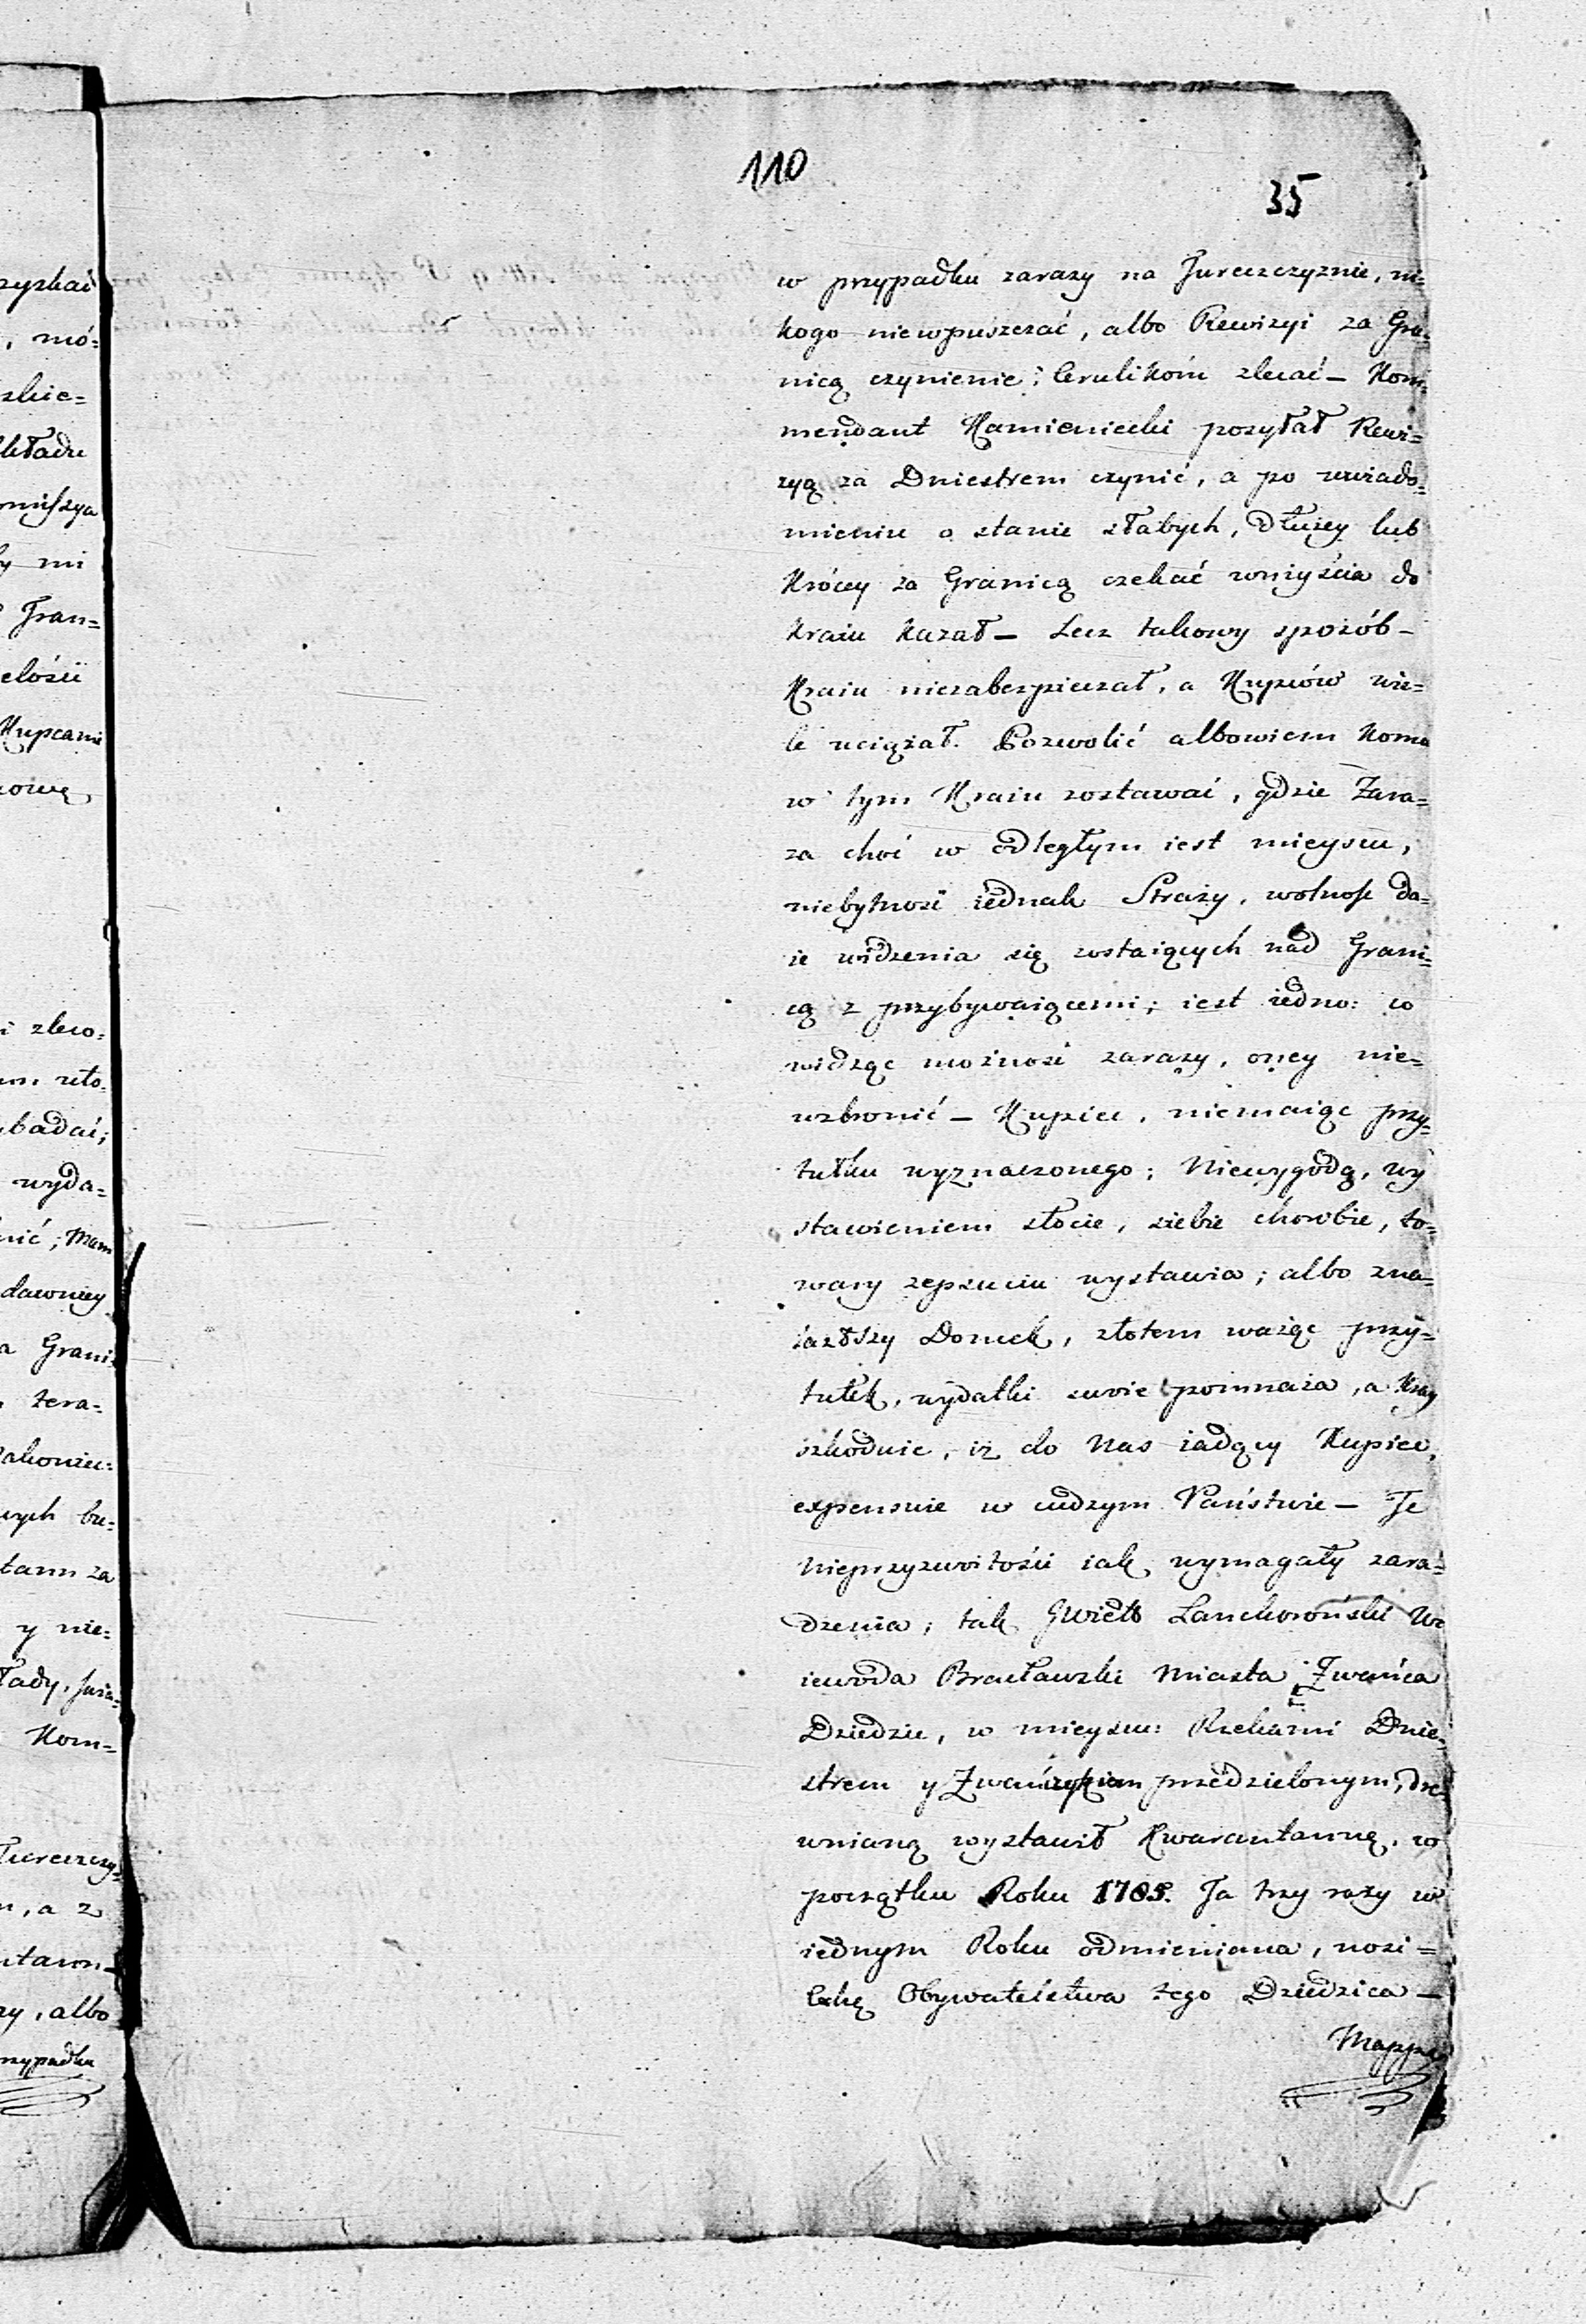 110
35
w przypadku zarazy na Turczczyznie, ni=
kogo niewpuszczać, albo Rewizyi za Gra=
nicą czynienie; Cerulikóm zlecać — Kom=
mendant Kamieniecki posyłał Rewi=
zyą za Dniestrem czynić, a po uwiado=
mieniu o stanie słabych, dłużey lub
krócey za Granicą czekać wniyścia do
Kraiu kazał — Lecz takowy sposób —
Kraiu niezabezpieczał, a Kupców wie=
le uciążał. Pozwolić albowiem komu
w tym Kraiu zostawać, gdzie Zara=
za choć w odległym iest mieyscu,
niebytność iednak Straży, wolność da=
ie widzenia się zostaiących nad Grani=
cą z przybywaiącemi; iest iedno: co
widząc możność zarazy, oney nie=
wzbronić — Kupiec, niemaiąc przy=
tułku wyznaczonego; Niewygodą, wy
stawieniem słocie, siebie chorobie, to=
wary zepsuciu wystawia; albo zna=
lazłszy Domek, złotem ważąc przy=
tułek, wydatki swoie pomnaża, a Kray
szkoduie, iż do Nas iadący Kupiec,
expensuie w cudzym Państwie — Te
Nieprzyzwoitości iak wymagały zara=
dzenia; tak JWielb Lanckoroński Wo
iewoda Bracławski Miasta Żwańca
Dziedzic, w mieyscu: Rzekami Dnie=
strem y Żwańczykiem przedzielonym, dre=
wnianą wystawił Kwarantannę, w
początku Roku 1785. Ta trzy razy w
iednym Roku odmieniana, nosi=
Cechę Obywatelstwa tego Dziedzica —
Mappa
zyskać
, mó=
skie=
kładu
omiſsya
y mi
Tran=
elości
Kupcami
ową
i zleco=
badać;
wyda=
nić; Mam
dawniey
a Grani=
tera=
ych bu=
tann za
y nie=
Kom=
Turczczy=
, a z
ntann
zy, albo
przypadku